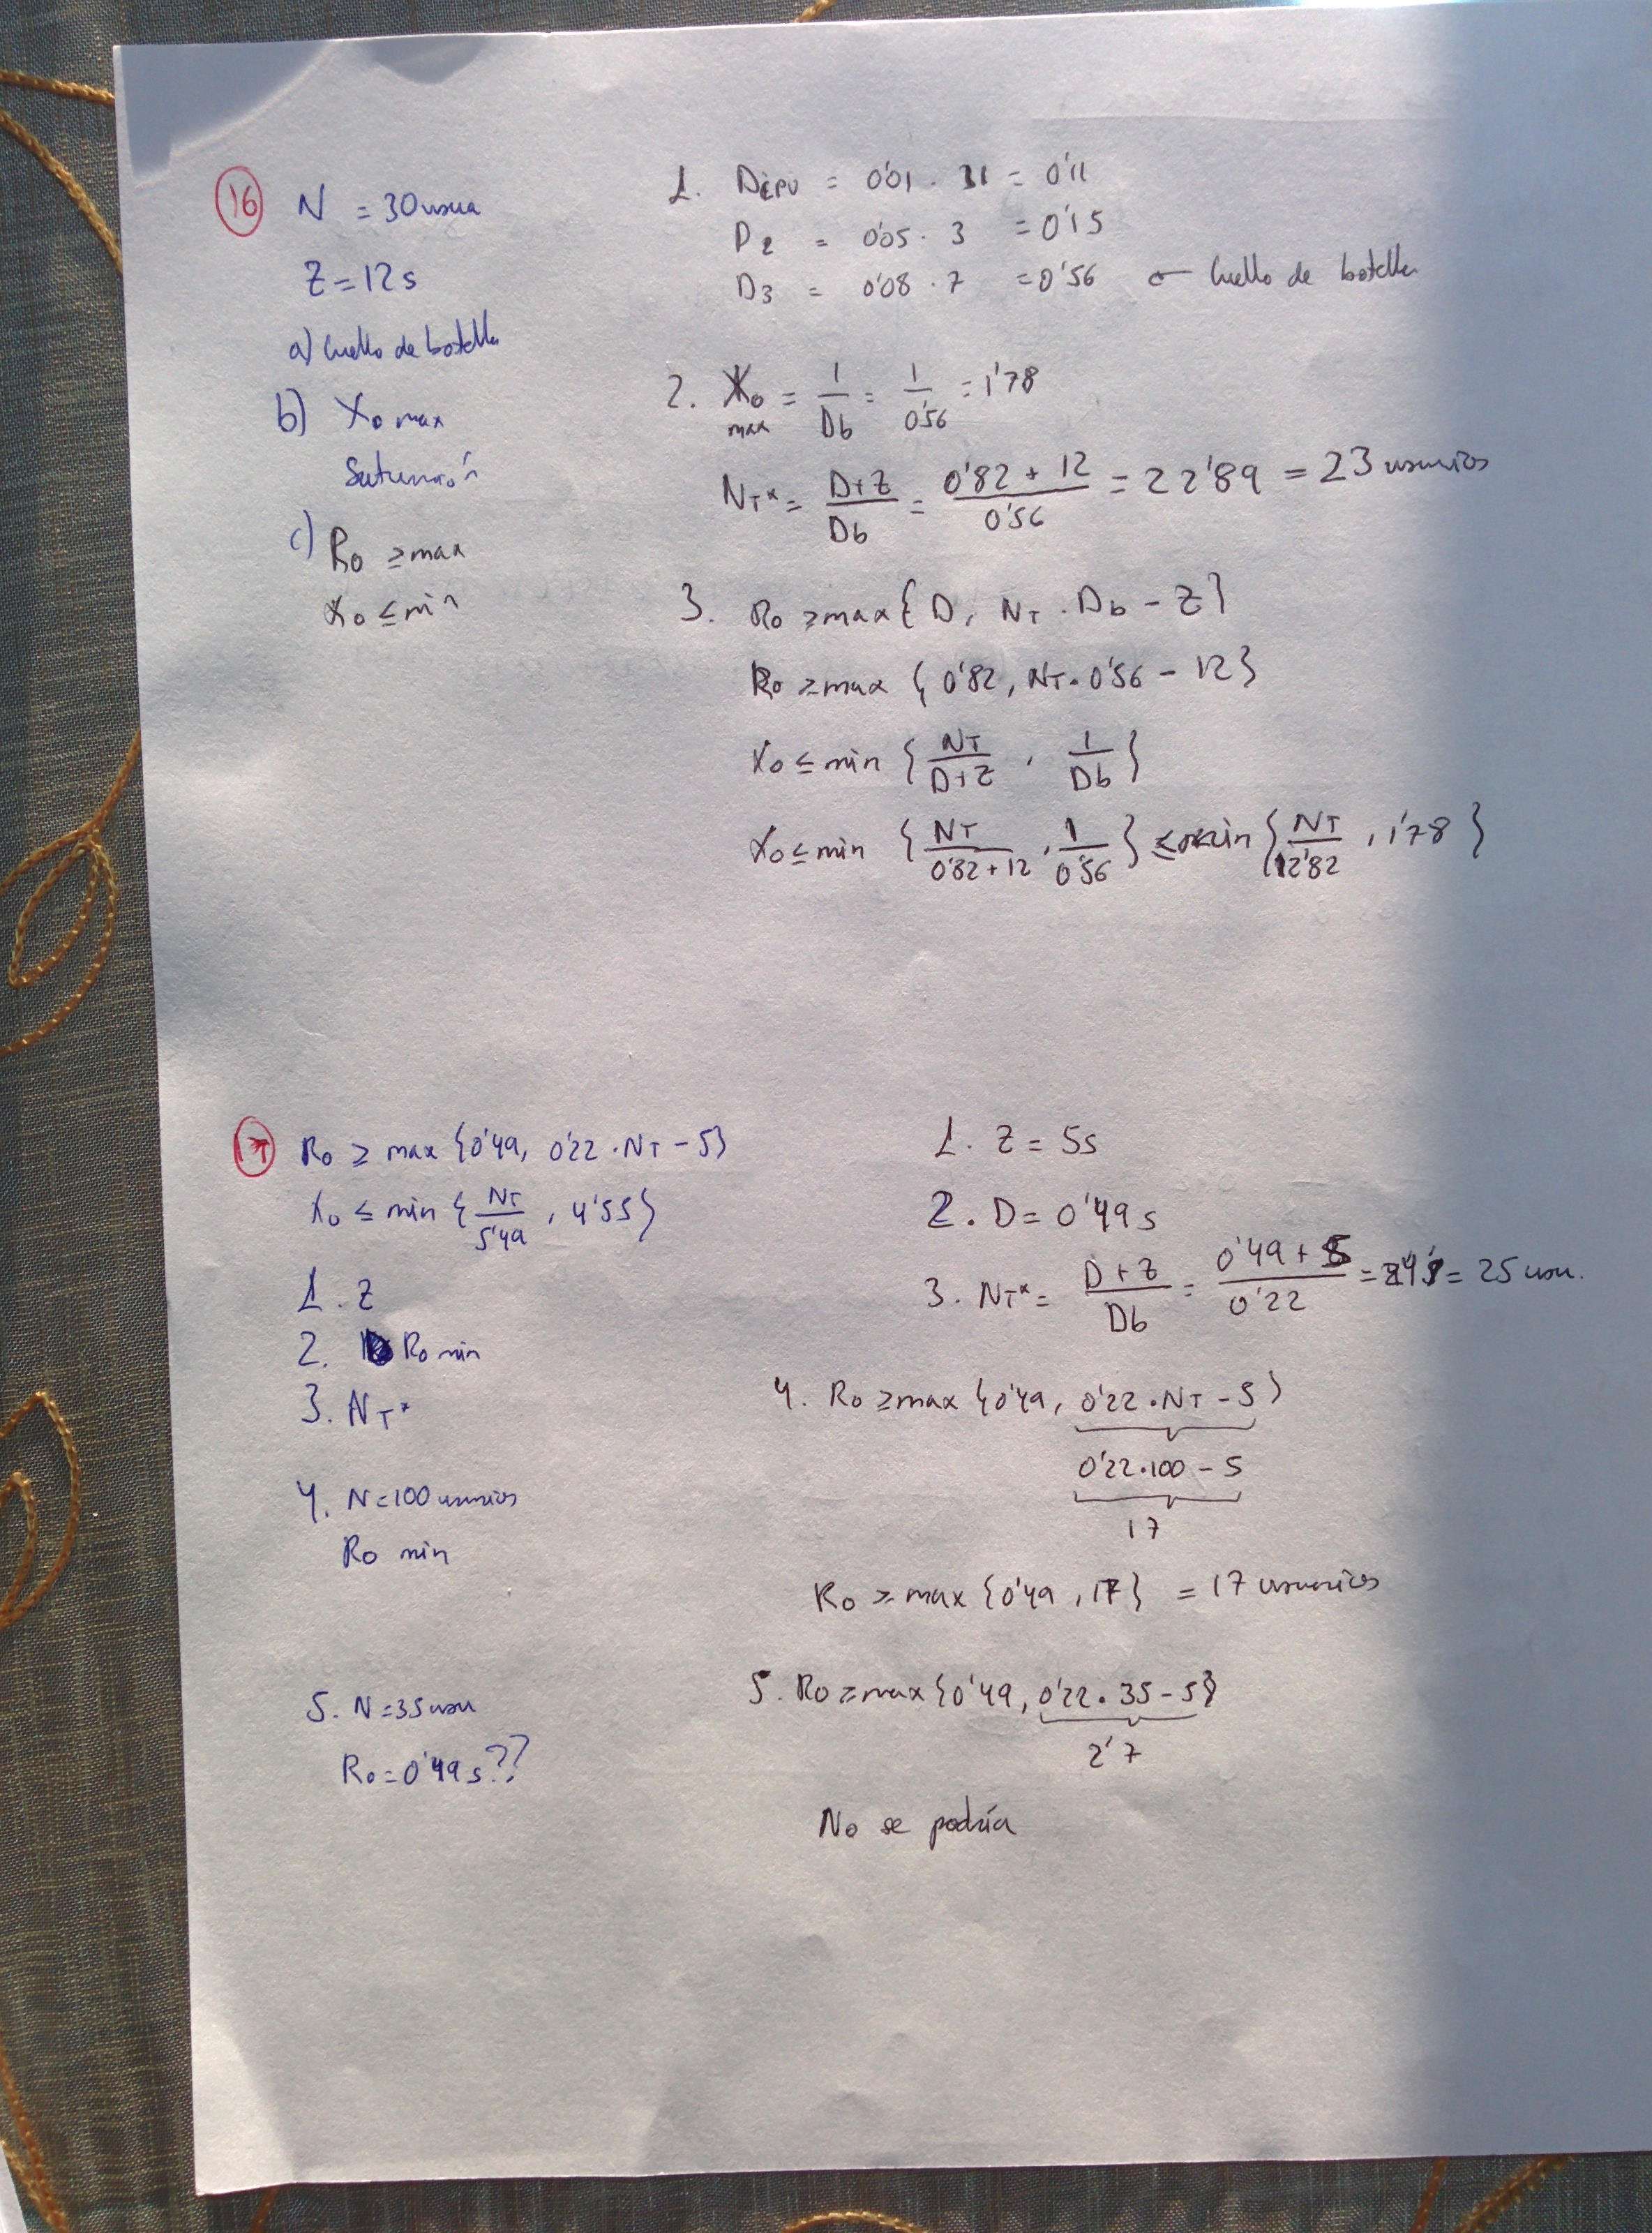 16
N = 30 usua
Z = 12 s
a) Cuello de botella
b) X0 max
Saturación
c) R0 ≥ max
X0 ≤ min
1. DCPU = 0'01 · 11 = 0'11
D2 = 0'05 · 3 = 0'15
D3 = 0'08 · 7 = 0'56 ← Cuello de botella
2. X0 max = 1/Db = 1/0'56 = 1'78
NT* = (D+Z)/Db = (0'82 + 12)/0'56 = 22'89 = 23 usuarios
3. R0 ≥ max {D, NT · Db - Z}
R0 ≥ max {0'82, NT · 0'56 - 12}
X0 ≤ min {NT/(D+Z), 1/Db}
X0 ≤ min {NT/(0'82+12), 1/0'56} ≤ min {NT/12'82, 1'78}
17
R0 ≥ max {0'49, 0'22 · NT - 5}
X0 ≤ min {NT/5'49, 4'55}
1. Z
2. R0 min
3. NT*
4. N = 100 usuarios
R0 min
5. N = 35 usu
R0 = 0'49 s??
1. Z = 5s
2. D = 0'49 s
3. NT* = (D+Z)/Db = (0'49 + 5)/0'22 = = 25 usu.
4. R0 ≥ max {0'49, 0'22 · NT - 5}
0'22 · 100 - 5
17
R0 ≥ max {0'49, 17} = 17 usuarios
5. R0 ≥ max {0'49, 0'22 · 35 - 5}
2'7
No se podría